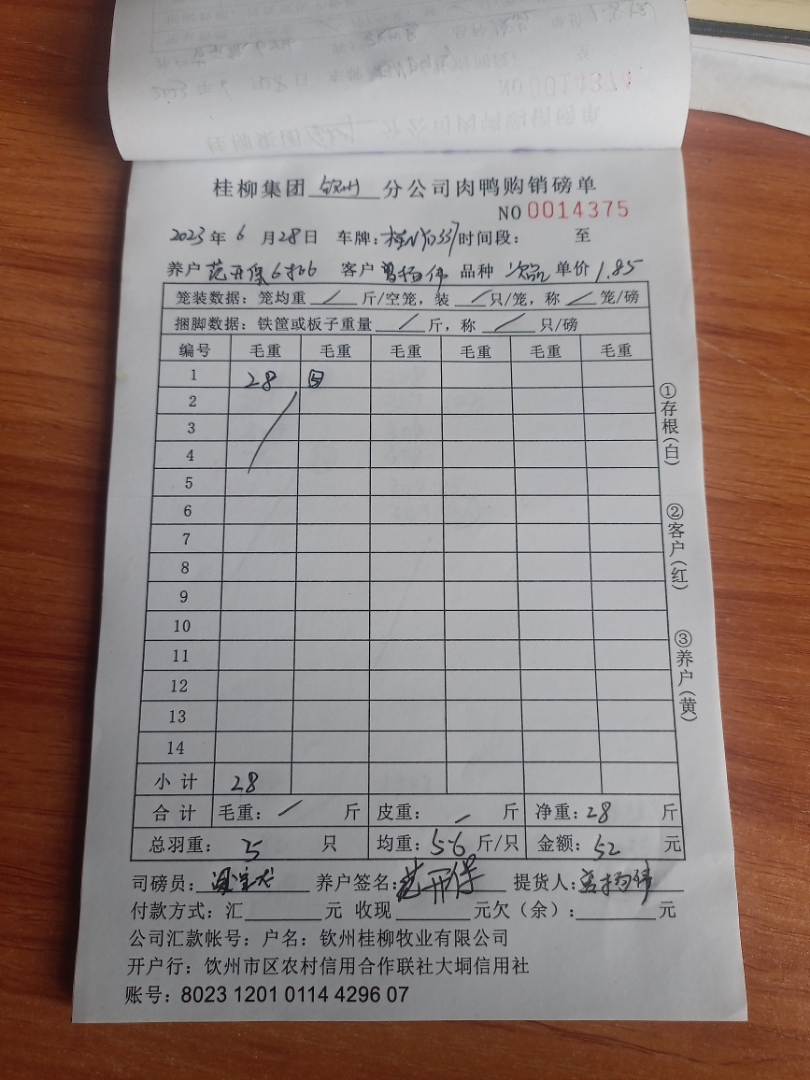 桂柳集团 钦州 分公司肉鸭购销磅单
NO 0014375
2023 年 6 月 28 日 车牌: 时间段: 至
养户 范开保 6 客户 曾杨伟 品种 次品 单价 1.85
笼装数据: 笼均重 / 斤/空笼, 装 / 只/笼, 称 / 笼/磅
捆脚数据: 铁筐或板子重量 / 斤, 称 / 只/磅
编号 毛重 毛重 毛重 毛重 毛重 毛重
1 28
2
3
4
5
6
7
8
9
10
11
12
13
14
小计 28
合计 毛重: / 斤 皮重: / 斤 净重: 28 斤
总羽重: 5 只 均重: 5.6 斤/只 金额: 52 元
司磅员: 养户签名: 范开保 提货人: 曾杨伟
付款方式: 汇 元 收现 元欠(余): 元
公司汇款帐号: 户名: 钦州桂柳牧业有限公司
开户行: 钦州市区农村信用合作联社大垌信用社
账号: 8023 1201 0114 4296 07
①存根(白)
②客户(红)
③养户(黄)